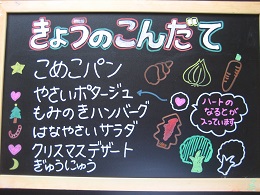 きょうのこんだて
こめこパン
やさいポタージュ
もみのきハンバーグ
はなやさいサラダ
クリスマスデザート
ぎゅうにゅう
ハートの
なるとが
入っています